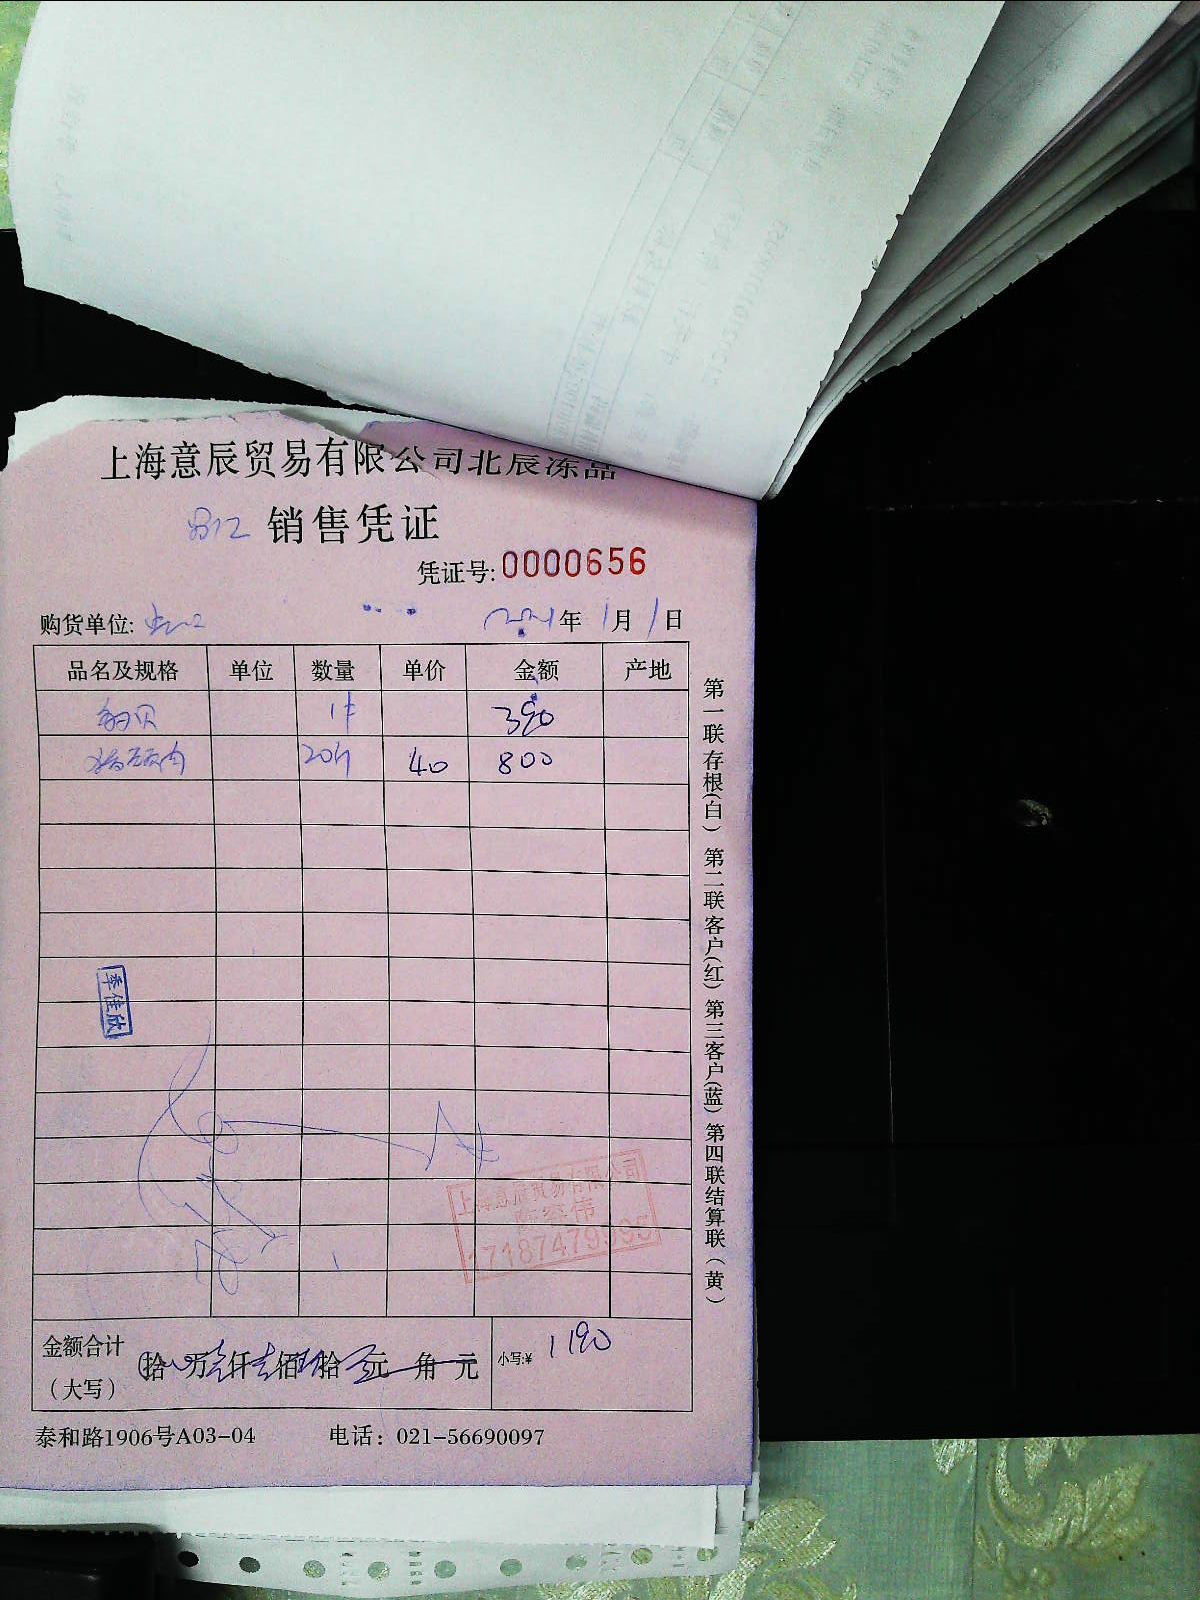 上海意辰贸易有限公司北辰冻品
812 销售凭证
凭证号: 0000656
购货单位:
2021年 1月 1日
品名及规格 单位 数量 单价 金额 产地
1件 390
20斤 40 800
季佳欣
上海意辰贸易有限公司
金额合计（大写） 拾 万壹仟壹佰玖拾 元 角 元 小写:¥ 1190
泰和路1906号A03-04 电话：021-56690097
第一联存根(白) 第二联客户(红) 第三客户(蓝) 第四联结算联(黄)